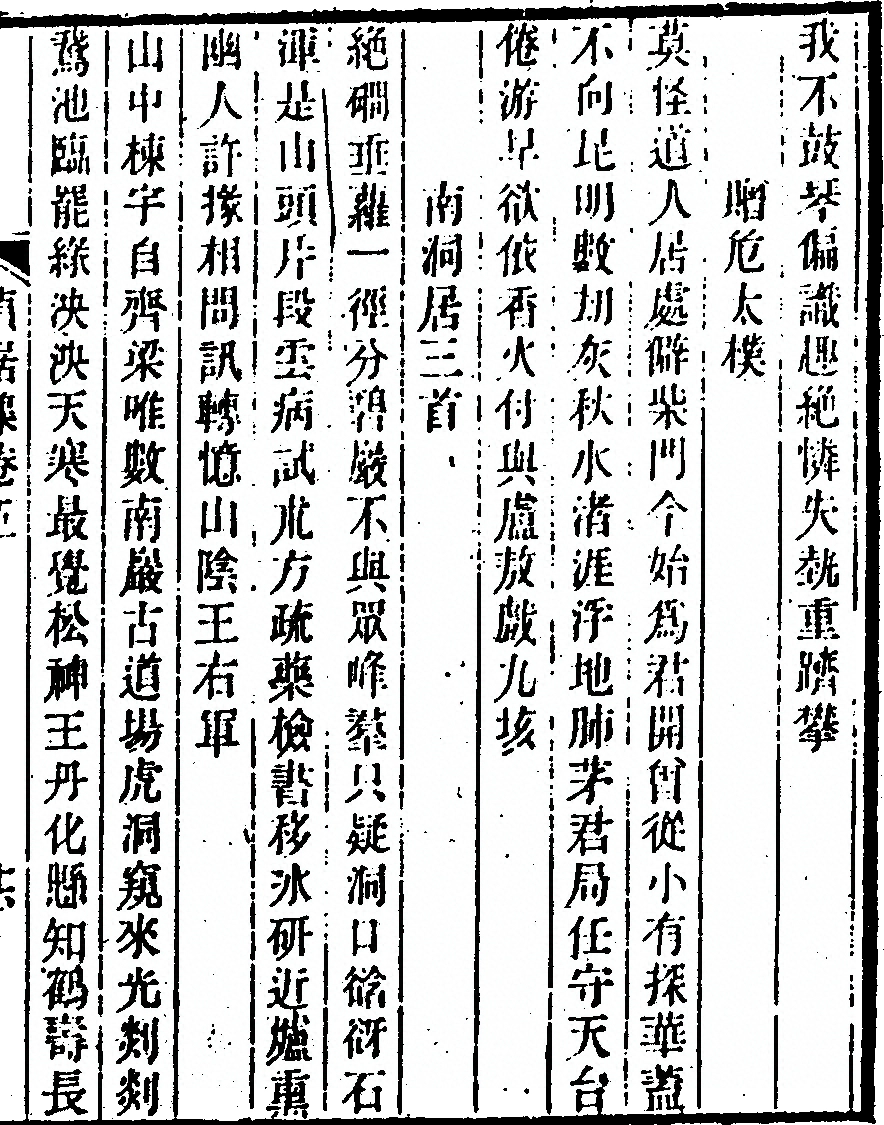 我不鼓琴偏識趣絶憐失埶重躋攀
贈危太樸
莫怪道人居處僻柴門今始爲君開曾從小有探華葢
不向昆明數刼灰秋水渚涯浮地肺茅君局任守天台
倦游早欲依香火付與盧敖戲九垓
南洞居三首
絶磵垂蘿一徑分碧巖不與眾峰羣只疑洞口谽谺石
渾是山頭片段雲病試水方疏藥檢書移冰硏近爐熏
幽人許掾相問訊轉憶山陰王右軍
山中棟宇自齊梁唯數南巖古道場虎洞窺來光剡剡
鵞池臨罷綠泱泱天寒最覺松神王丹化懸知鶴壽長
居集卷五